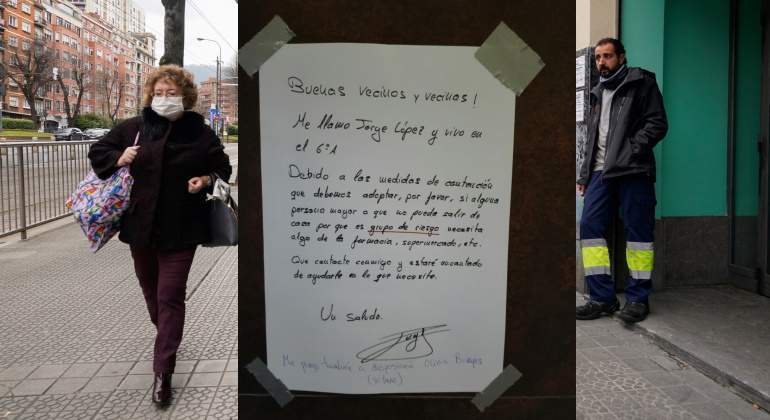 Buenas vecinos y vecinas!
Me llamo Jorge López y vivo en
el 6º 1
Debido a las medidas de contracción
que debemos adoptar, por favor, si alguna
persona mayor o que no pueda salir de
casa por que es grupo de riesgo necesita
algo de la farmacia, supermercado, etc.
Que contacte conmigo y estaré encantado
de ayudarle en lo que necesite.
Un saludo.
Me pongo también a disposición